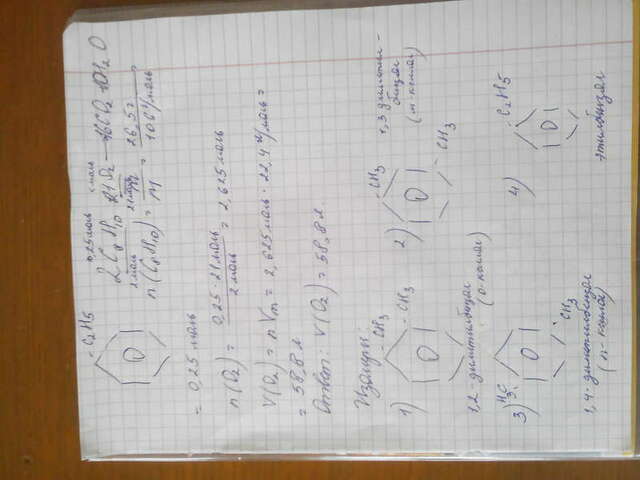 -C2H5
0,25 моль х моль
2C8H10 + 21O2 → 16CO2 + 10H2O
2 моль 21 моль
n(C8H10) = m/M = 26,5 г / 106 г/моль =
= 0,25 моль
n(O2) = 0,25 · 21 моль / 2 моль = 2,625 моль
V(O2) = n Vm = 2,625 моль · 22,4 л/моль =
= 58,8 л
Ответ: V(O2) = 58,8 л.
Изомеры:
1) CH3
-CH3
1,2-диметилбензол
(о-ксилол)
2) -CH3
-CH3
1,3 диметил-
бензол
(м-ксилол)
3) H3C
CH3
1,4-диметилбензол
(п-ксилол)
4) -C2H5
этилбензол